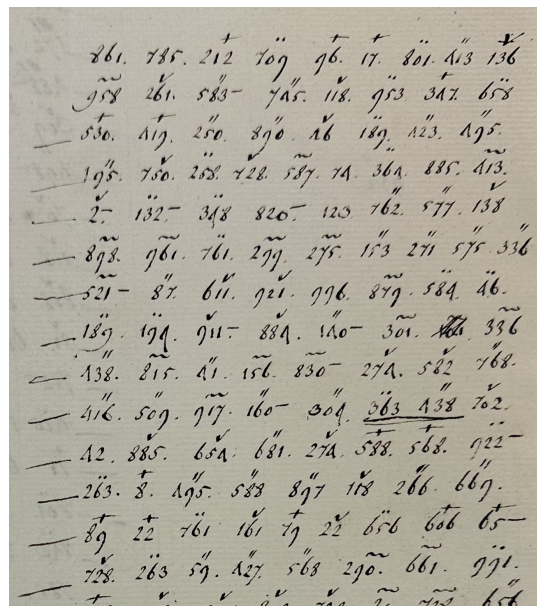 861. 785. 212 709 96. 17. 801. 413 136
958 261. 583- 745. 118. 953 347. 658
530. 419. 250. 890. 46 189. 423. 495.
195. 750. 258. 728. 587. 74. 364. 885. 413.
2- 132- 348 820- 123 762. 577. 138
898. 961. 761. 299. 275. 153 271 575. 336
521- 87. 611. 921. 996. 879. 584. 46.
189. 194. 911- 884. 140- 301. 336
438. 815. 41. 156. 830- 274. 582 768.
416. 509. 917. 160- 304. 363 438 702.
42. 885. 654. 681. 274. 588. 568. 922-
263. 8. 495. 588 897 118 266. 669.
89 22 761 161 79 22 656 606 65-
728. 263 59. 427. 568 290. 661. 991.